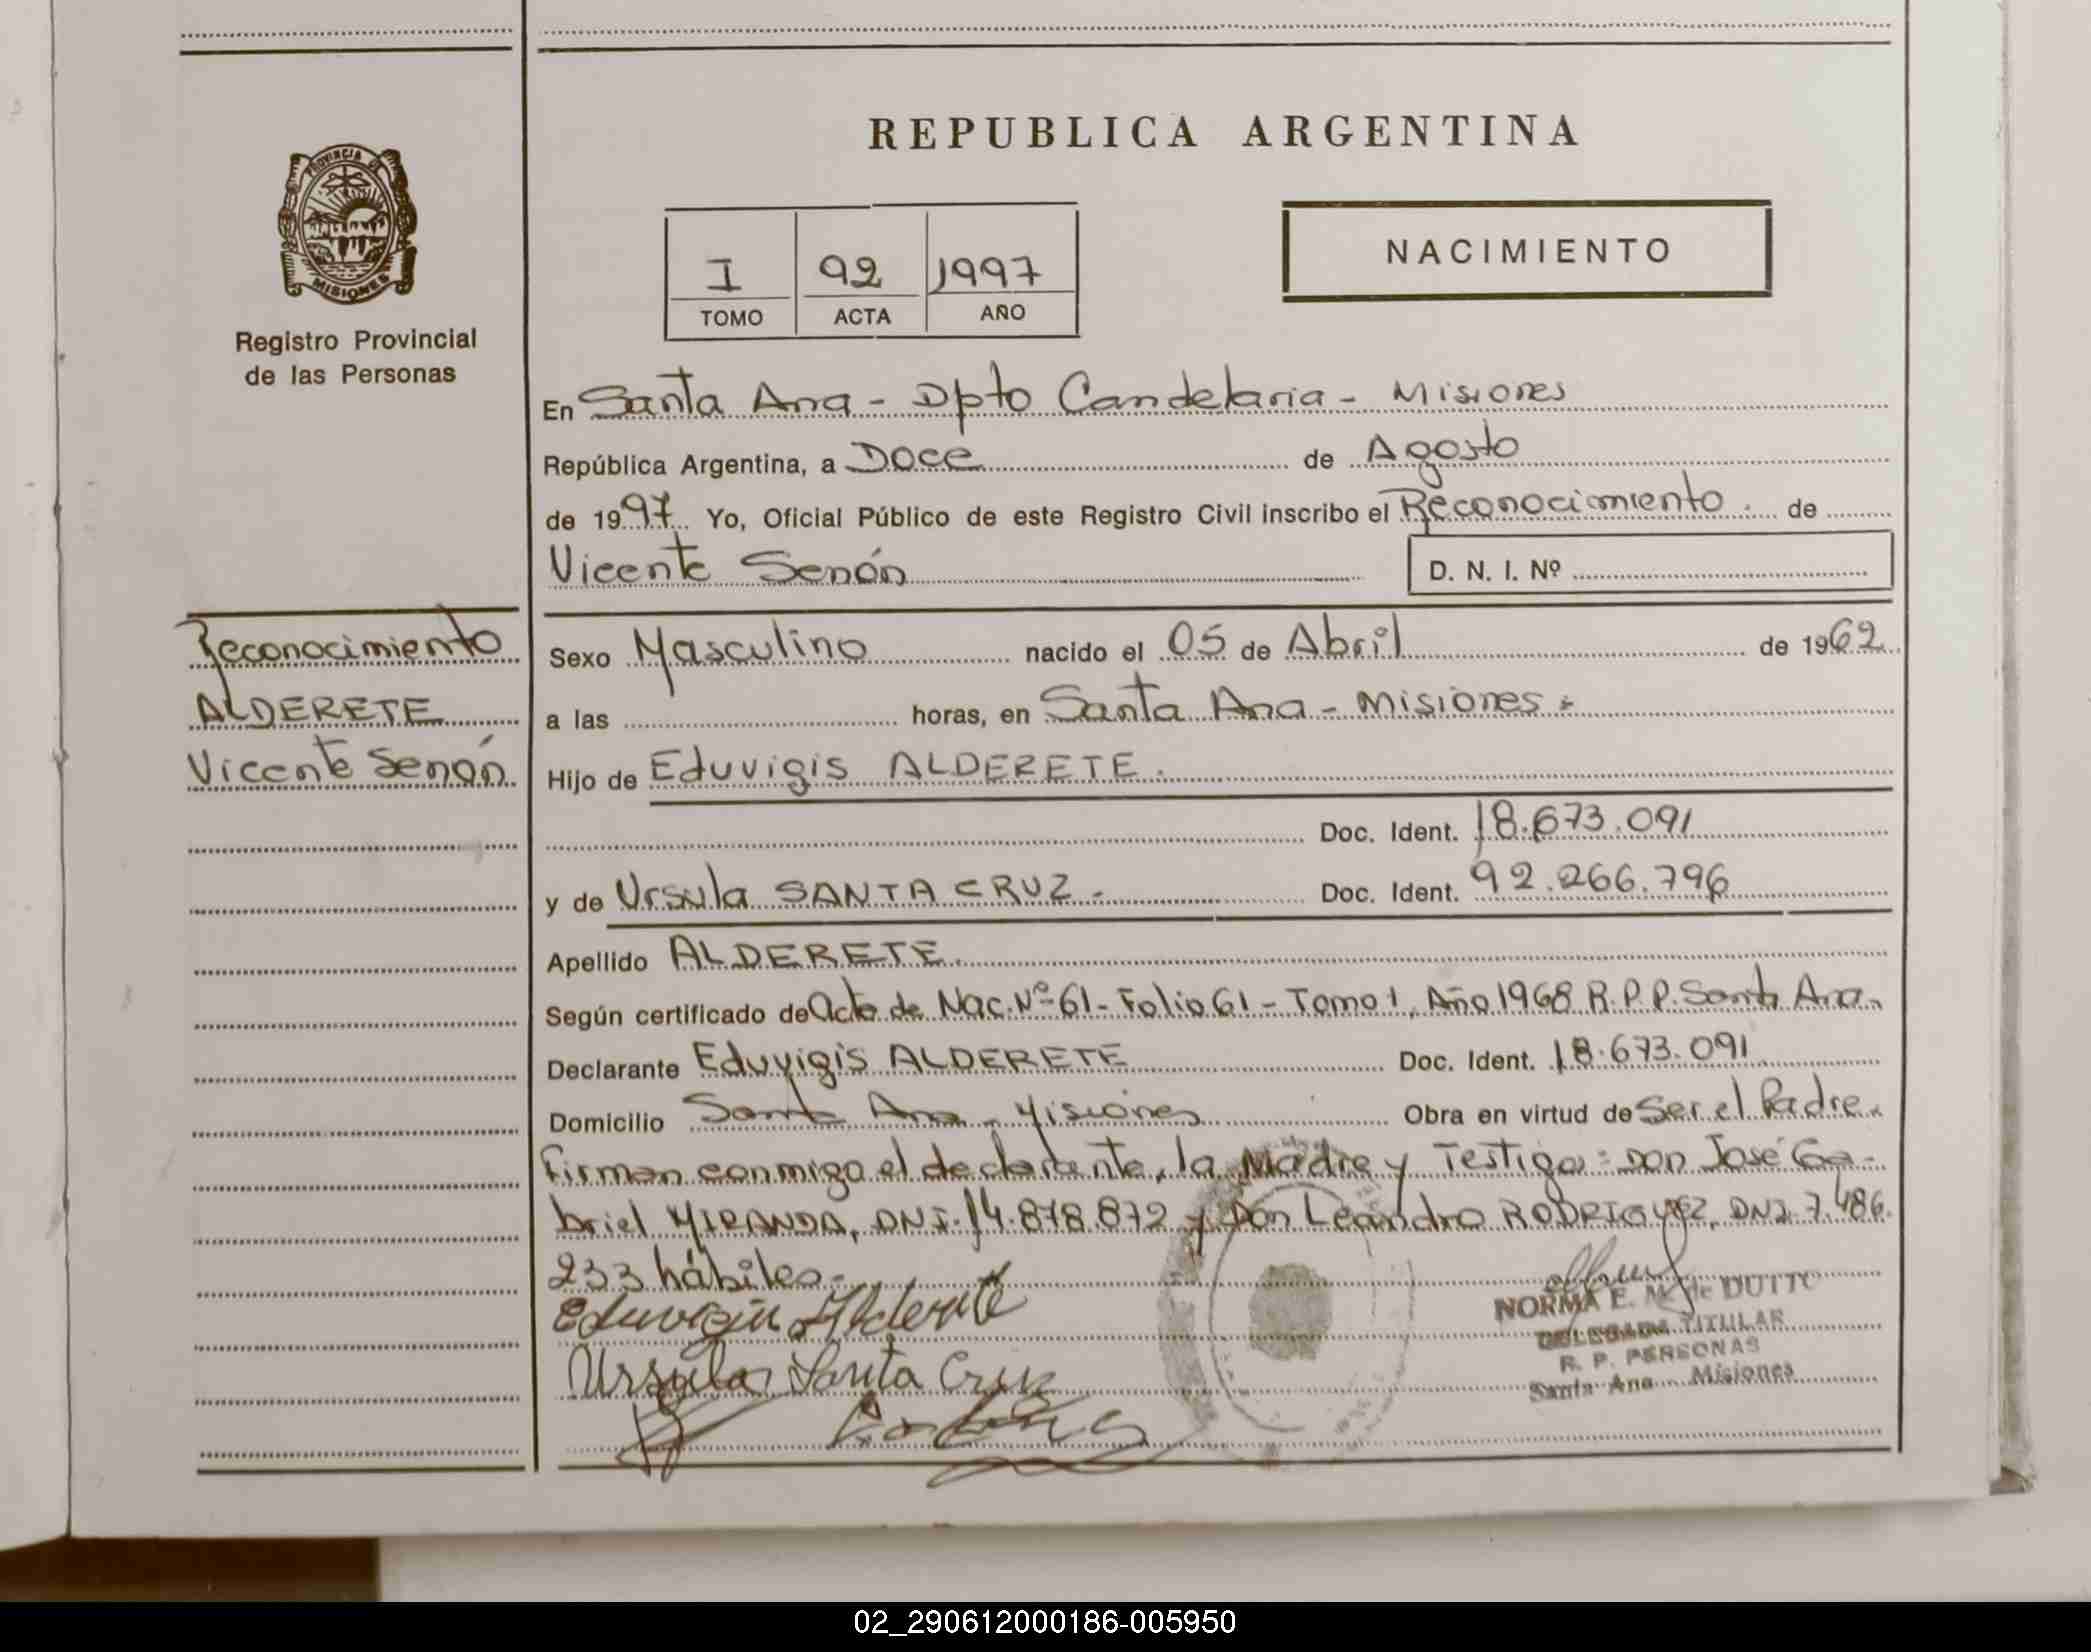 PROVINCIA DE
MISIONES
Registro Provincial
de las Personas
REPUBLICA ARGENTINA
I 92 1997
TOMO ACTA AÑO
NACIMIENTO
En Santa Ana - Dpto Candelaria - Misiones
República Argentina, a Doce de Agosto
de 1997 Yo, Oficial Público de este Registro Civil inscribo el Reconocimiento. de
Vicente Senón D. N. I. Nº
Reconocimiento
ALDERETE
Vicente Senón.
Sexo Masculino nacido el 05 de Abril de 1962
a las horas, en Santa Ana - Misiones -
Hijo de Eduvigis ALDERETE.
Doc. Ident. 18.673.091
y de Ursula SANTA CRUZ - Doc. Ident. 92.266.796
Apellido ALDERETE.
Según certificado de Acta de Nac. Nº 61 - Folio 61 - Tomo 1, Año 1968 R.P.P. Santa Ana.
Declarante Eduvigis ALDERETE Doc. Ident. 18.673.091
Domicilio Santa Ana - Misiones Obra en virtud de Ser el Padre.
Firman conmigo el declarante, la Madre y Testigos: Don José Ga-
briel MIRANDA, DNI. 14.878.872 y Don Leandro RODRIGUEZ, DNI. 7.486.
233 hábiles.-
Eduvigis Alderete
Ursula Santa Cruz
NORMA E. M. de DUTTO
DELEGADA TITULAR
R. P. PERSONAS
Santa Ana - Misiones
02_290612000186-005950